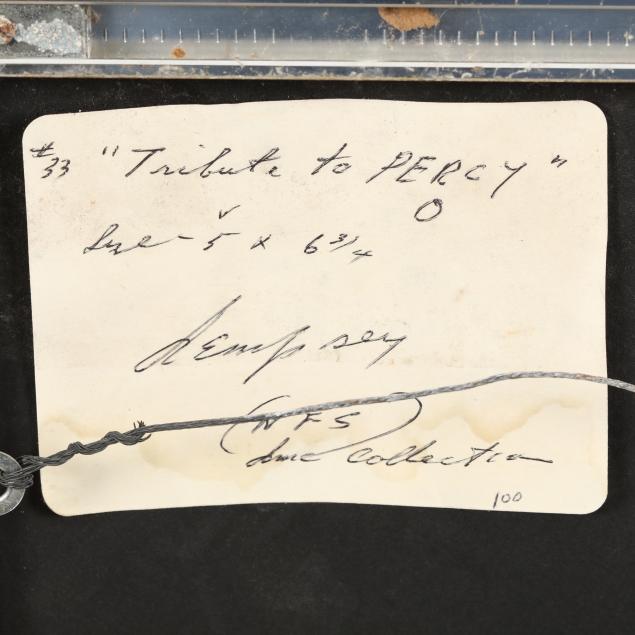 #33 "Tribute to PERCY"
O
Size - 5 x 6 3/4
Dempsey
(NFS)
dmc collection
100